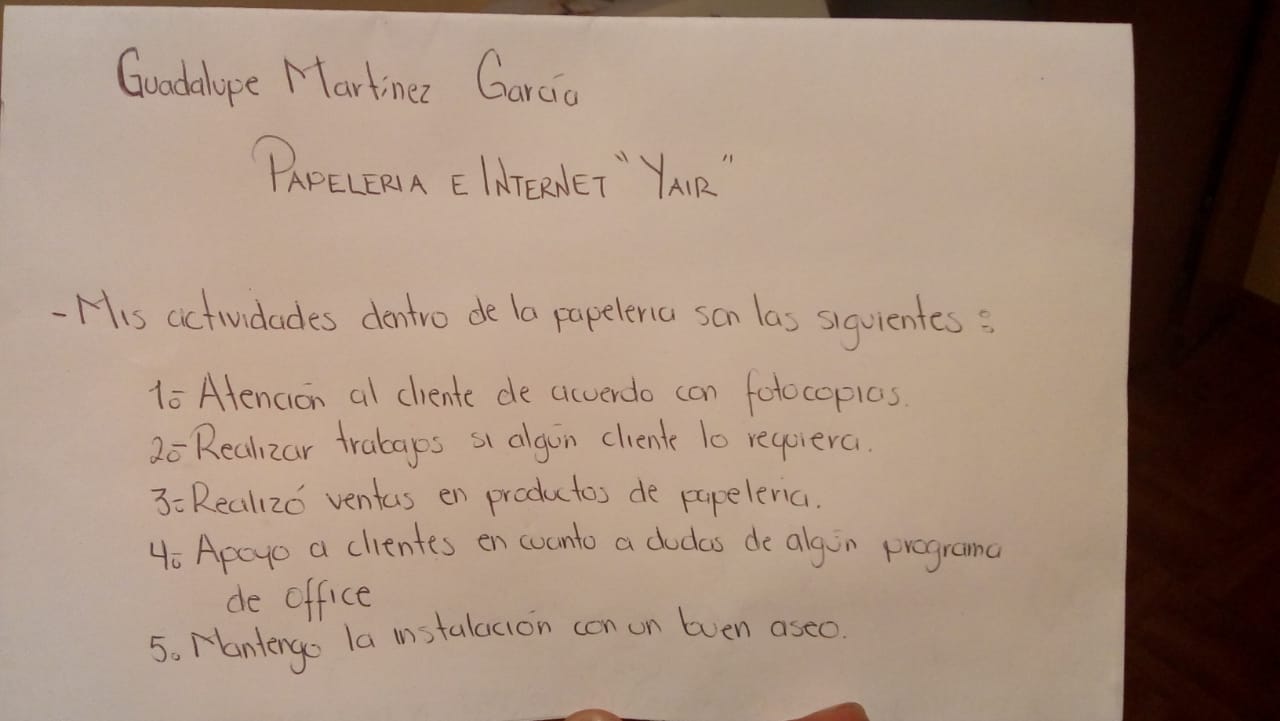 Guadalupe Martínez García
PAPELERIA E INTERNET "YAIR"
- Mis actividades dentro de la papeleria son las siguientes :
1.- Atención al cliente de acuerdo con fotocopias.
2.- Realizar trabajos si algún cliente lo requiera.
3.- Realizó ventas en productos de papeleria.
4.- Apoyo a clientes en cuanto a dudas de algún programa
de office
5. Mantengo la instalación con un buen aseo.